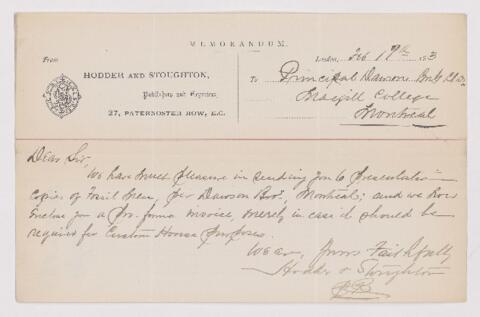 MEMORANDUM.
From
HODDER AND STOUGHTON,
Publishers and Exporters,
27, PATERNOSTER ROW, E.C.
London, Feb 17th 1883
To Principal Dawson
Macgill College
Montreal
Dear Sir,
We have much pleasure in sending you 6 presentation
copies of Fossil Men, per Dawson Bros., Montreal; and we
enclose you a pro. forma invoice, merely in case it should be
required for Custom House purposes.
We are, Yours Faithfully
Hodder & Stoughton